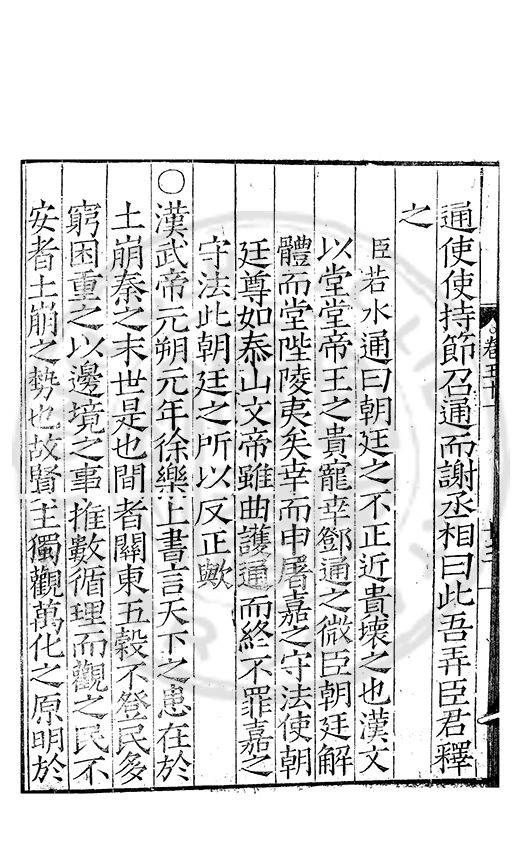 通使使持節召通而謝丞相曰此吾弄臣君釋
之
臣若水通曰朝廷之不正近貴壞之也漢文
以堂堂帝王之貴寵幸鄧通之微臣朝廷解
體而堂陛陵夷矣幸而申屠嘉之守法使朝
廷尊如泰山文帝雖曲護通而終不罪嘉之
守法此朝廷之所以反正歟
○漢武帝元朔元年徐樂上書言天下之患在於
土崩秦之末世是也間者關東五穀不登民多
窮困重之以邊境之事推數循理而觀之民不
安者土崩之勢也故賢主獨觀萬化之原明於
卷五十